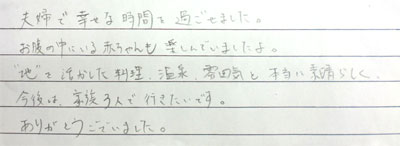 夫婦で幸せな時間を過ごせました。
お腹の中にいる赤ちゃんも楽しんでいましたよ。
"地"を活かした料理、温泉、雰囲気と本当に素晴らしく、
今後は、家族3人で行きたいです。
ありがとうございました。